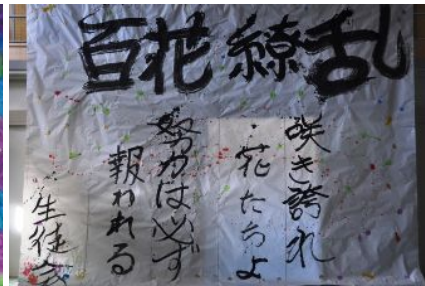 百花繚乱
咲き誇れ
花たちよ
努力は必ず
報われる
生徒会